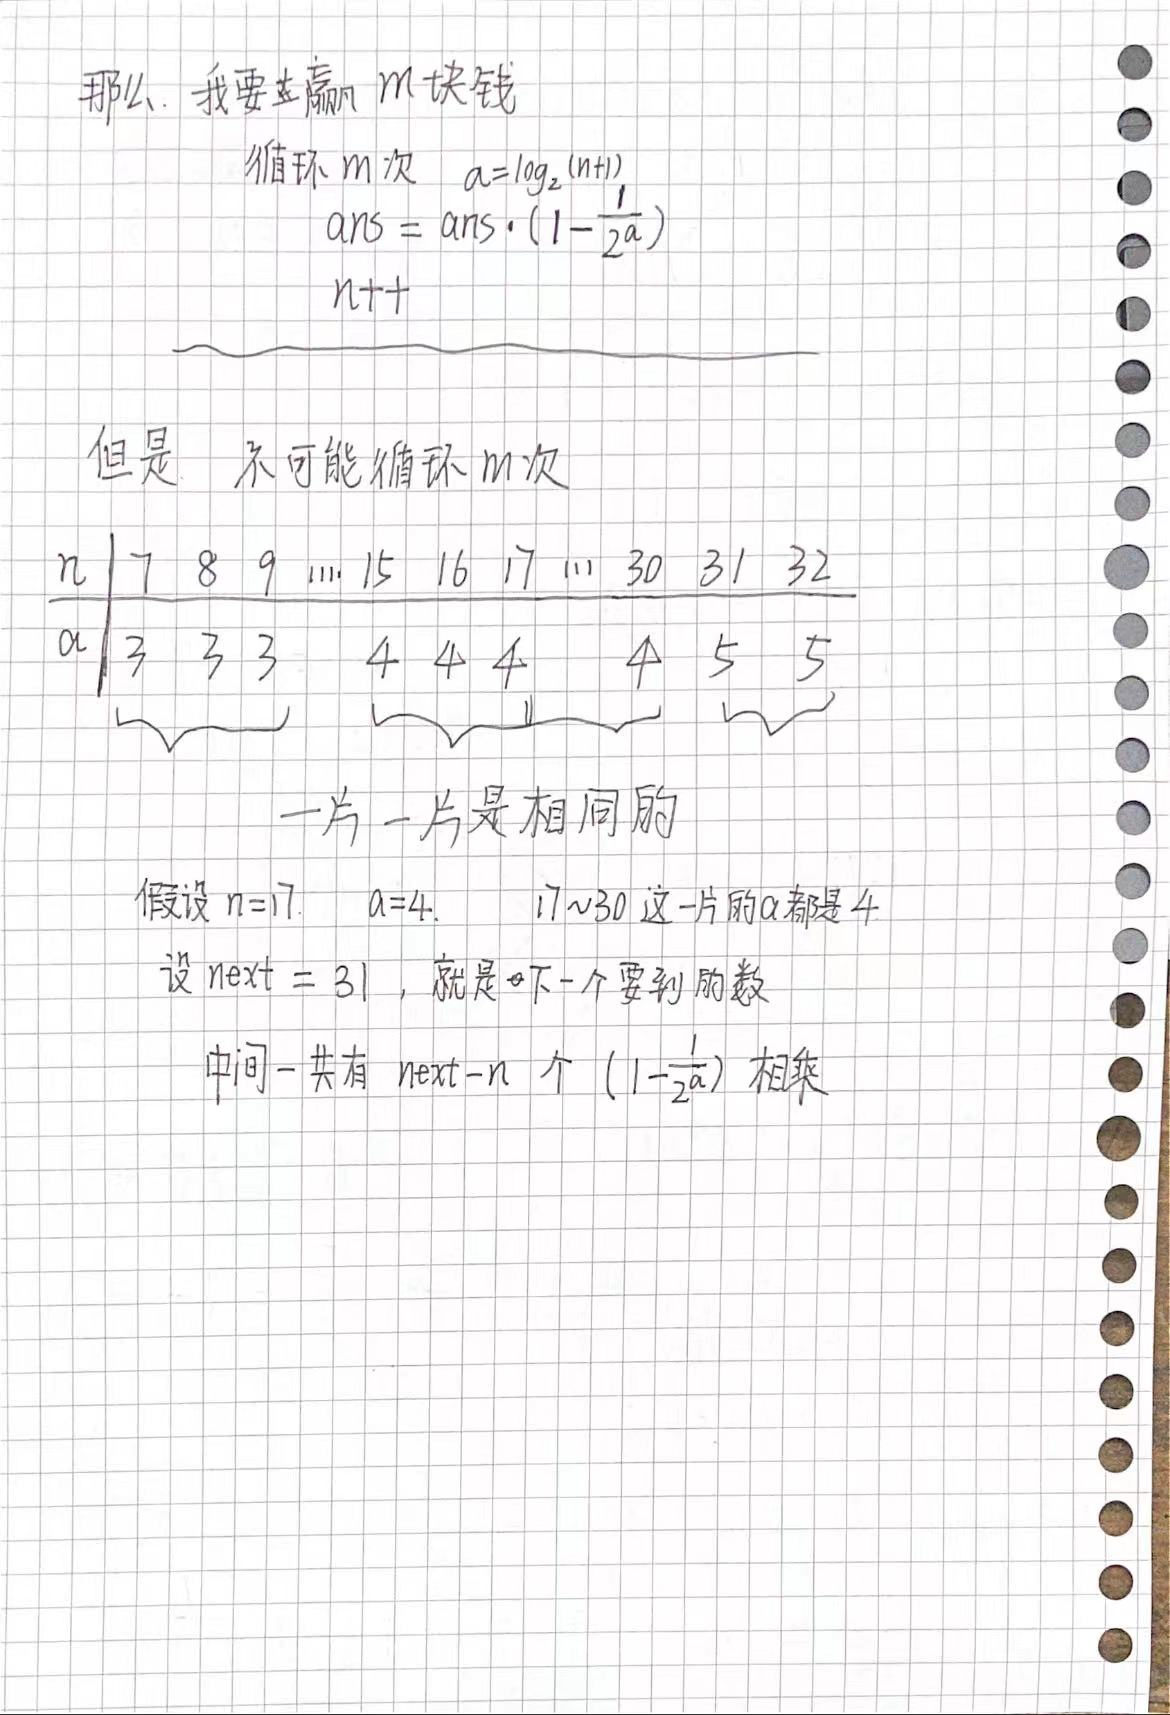 那么 我要赢 m块钱
循环m次 a=log₂(n+1)
ans = ans·(1-1/2^a)
n++
但是 不可能循环m次
n 7 8 9 .... 15 16 17 ... 30 31 32
a 3 3 3 4 4 4 4 5 5
一片一片是相同的
假设 n=17. a=4. 17~30 这一片的a都是4
设 next = 31 , 就是下一个要到的数
中间一共有 next-n 个 (1-1/2^a) 相乘